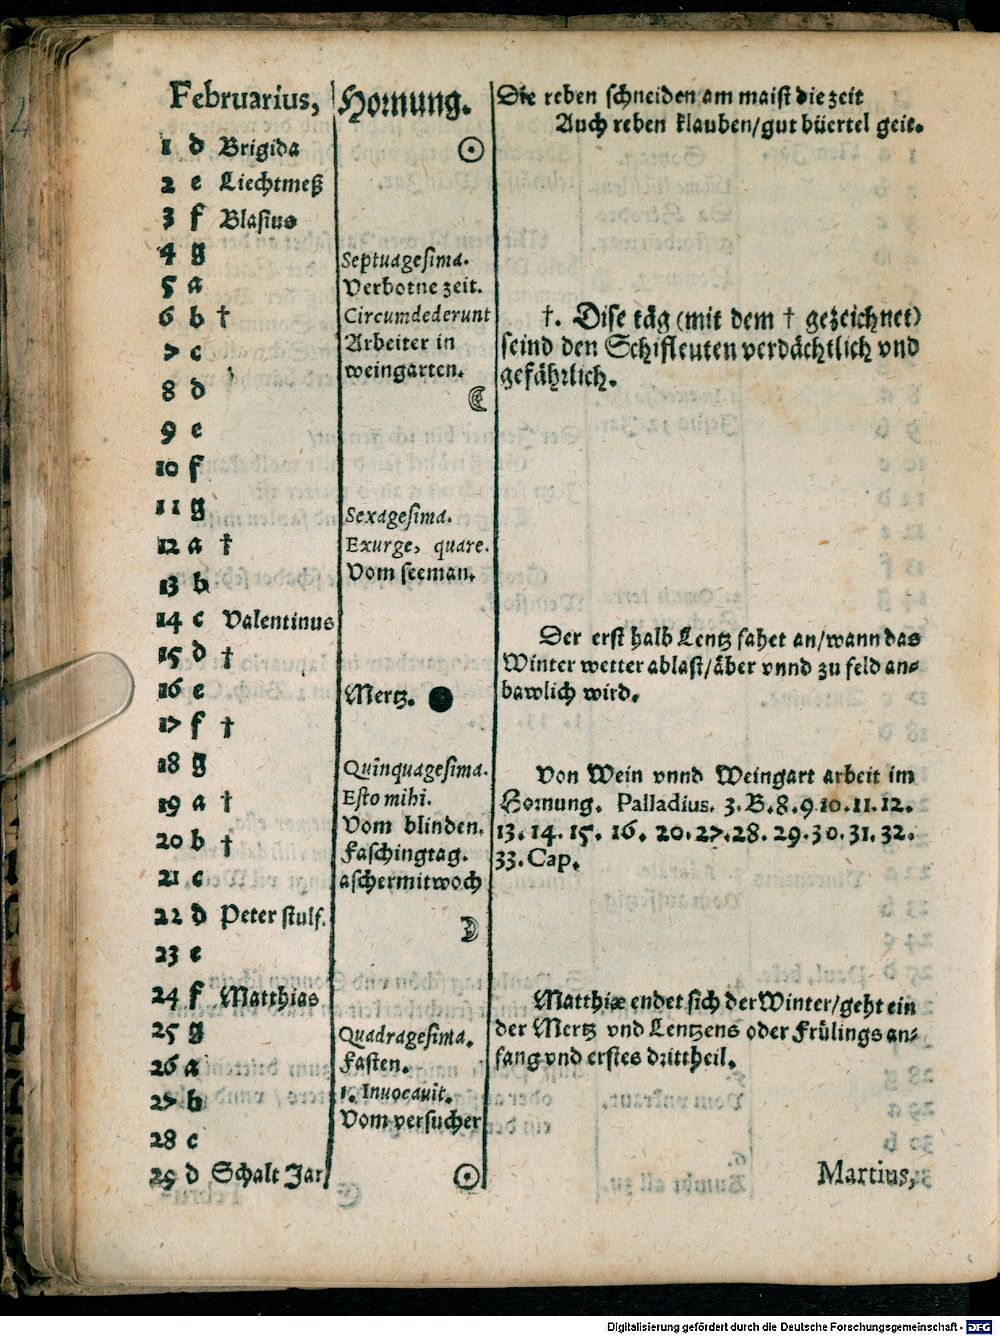 Februarius,
1 d Brigida
2 e Liechtmeß
3 f Blasius
4 g
5 a
6 b †
7 c
8 d
9 e
10 f
11 g
12 a †
13 b
14 c Valentinus
15 d †
16 e
17 f †
18 g
19 a †
20 b †
21 c
22 d Peter stulf.
23 e
24 f Matthias
25 g
26 a
27 b
28 c
29 d Schalt Jar
Hornung.
Septuagesima.
Verbotne zeit.
Circumdederunt
Arbeiter in
weingarten.
Sexagesima.
Exurge, quare.
Vom seeman.
Mertz.
Quinquagesima.
Esto mihi.
Vom blinden.
Faschingtag.
aschermitwoch
Quadragesima.
Fasten.
1. Inuocauit.
Vom versucher
Die reben schneiden am maist die zeit
Auch reben klauben/gut büertel geit.
†. Dise täg (mit dem † gezeichnet)
seind den Schifleuten verdächtlich vnd
gefährlich.
Der erst halb Lentz fahet an/wann das
Winter wetter ablast/äber vnnd zu feld an=
bawlich wird.
Von Wein vnnd Weingart arbeit im
Hornung. Palladius. 3. B. 8. 9. 10. 11. 12.
13. 14. 15. 16. 20. 27. 28. 29. 30. 31. 32.
33. Cap.
Matthiæ endet sich der Winter/geht ein
der Mertz vnd Lentzens oder Frülings an=
fang vnd erstes drittheil.
Martius,
Digitalisierung gefördert durch die Deutsche Forschungsgemeinschaft - DFG